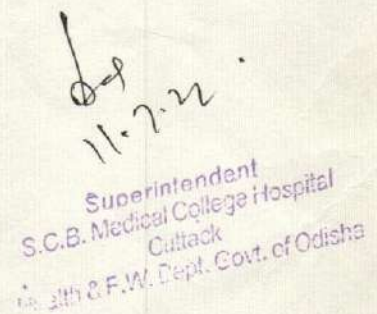 11.7.22
Superintendent
S.C.B. Medical College Hospital
Cuttack
Health & F.W. Dept. Govt. of Odisha